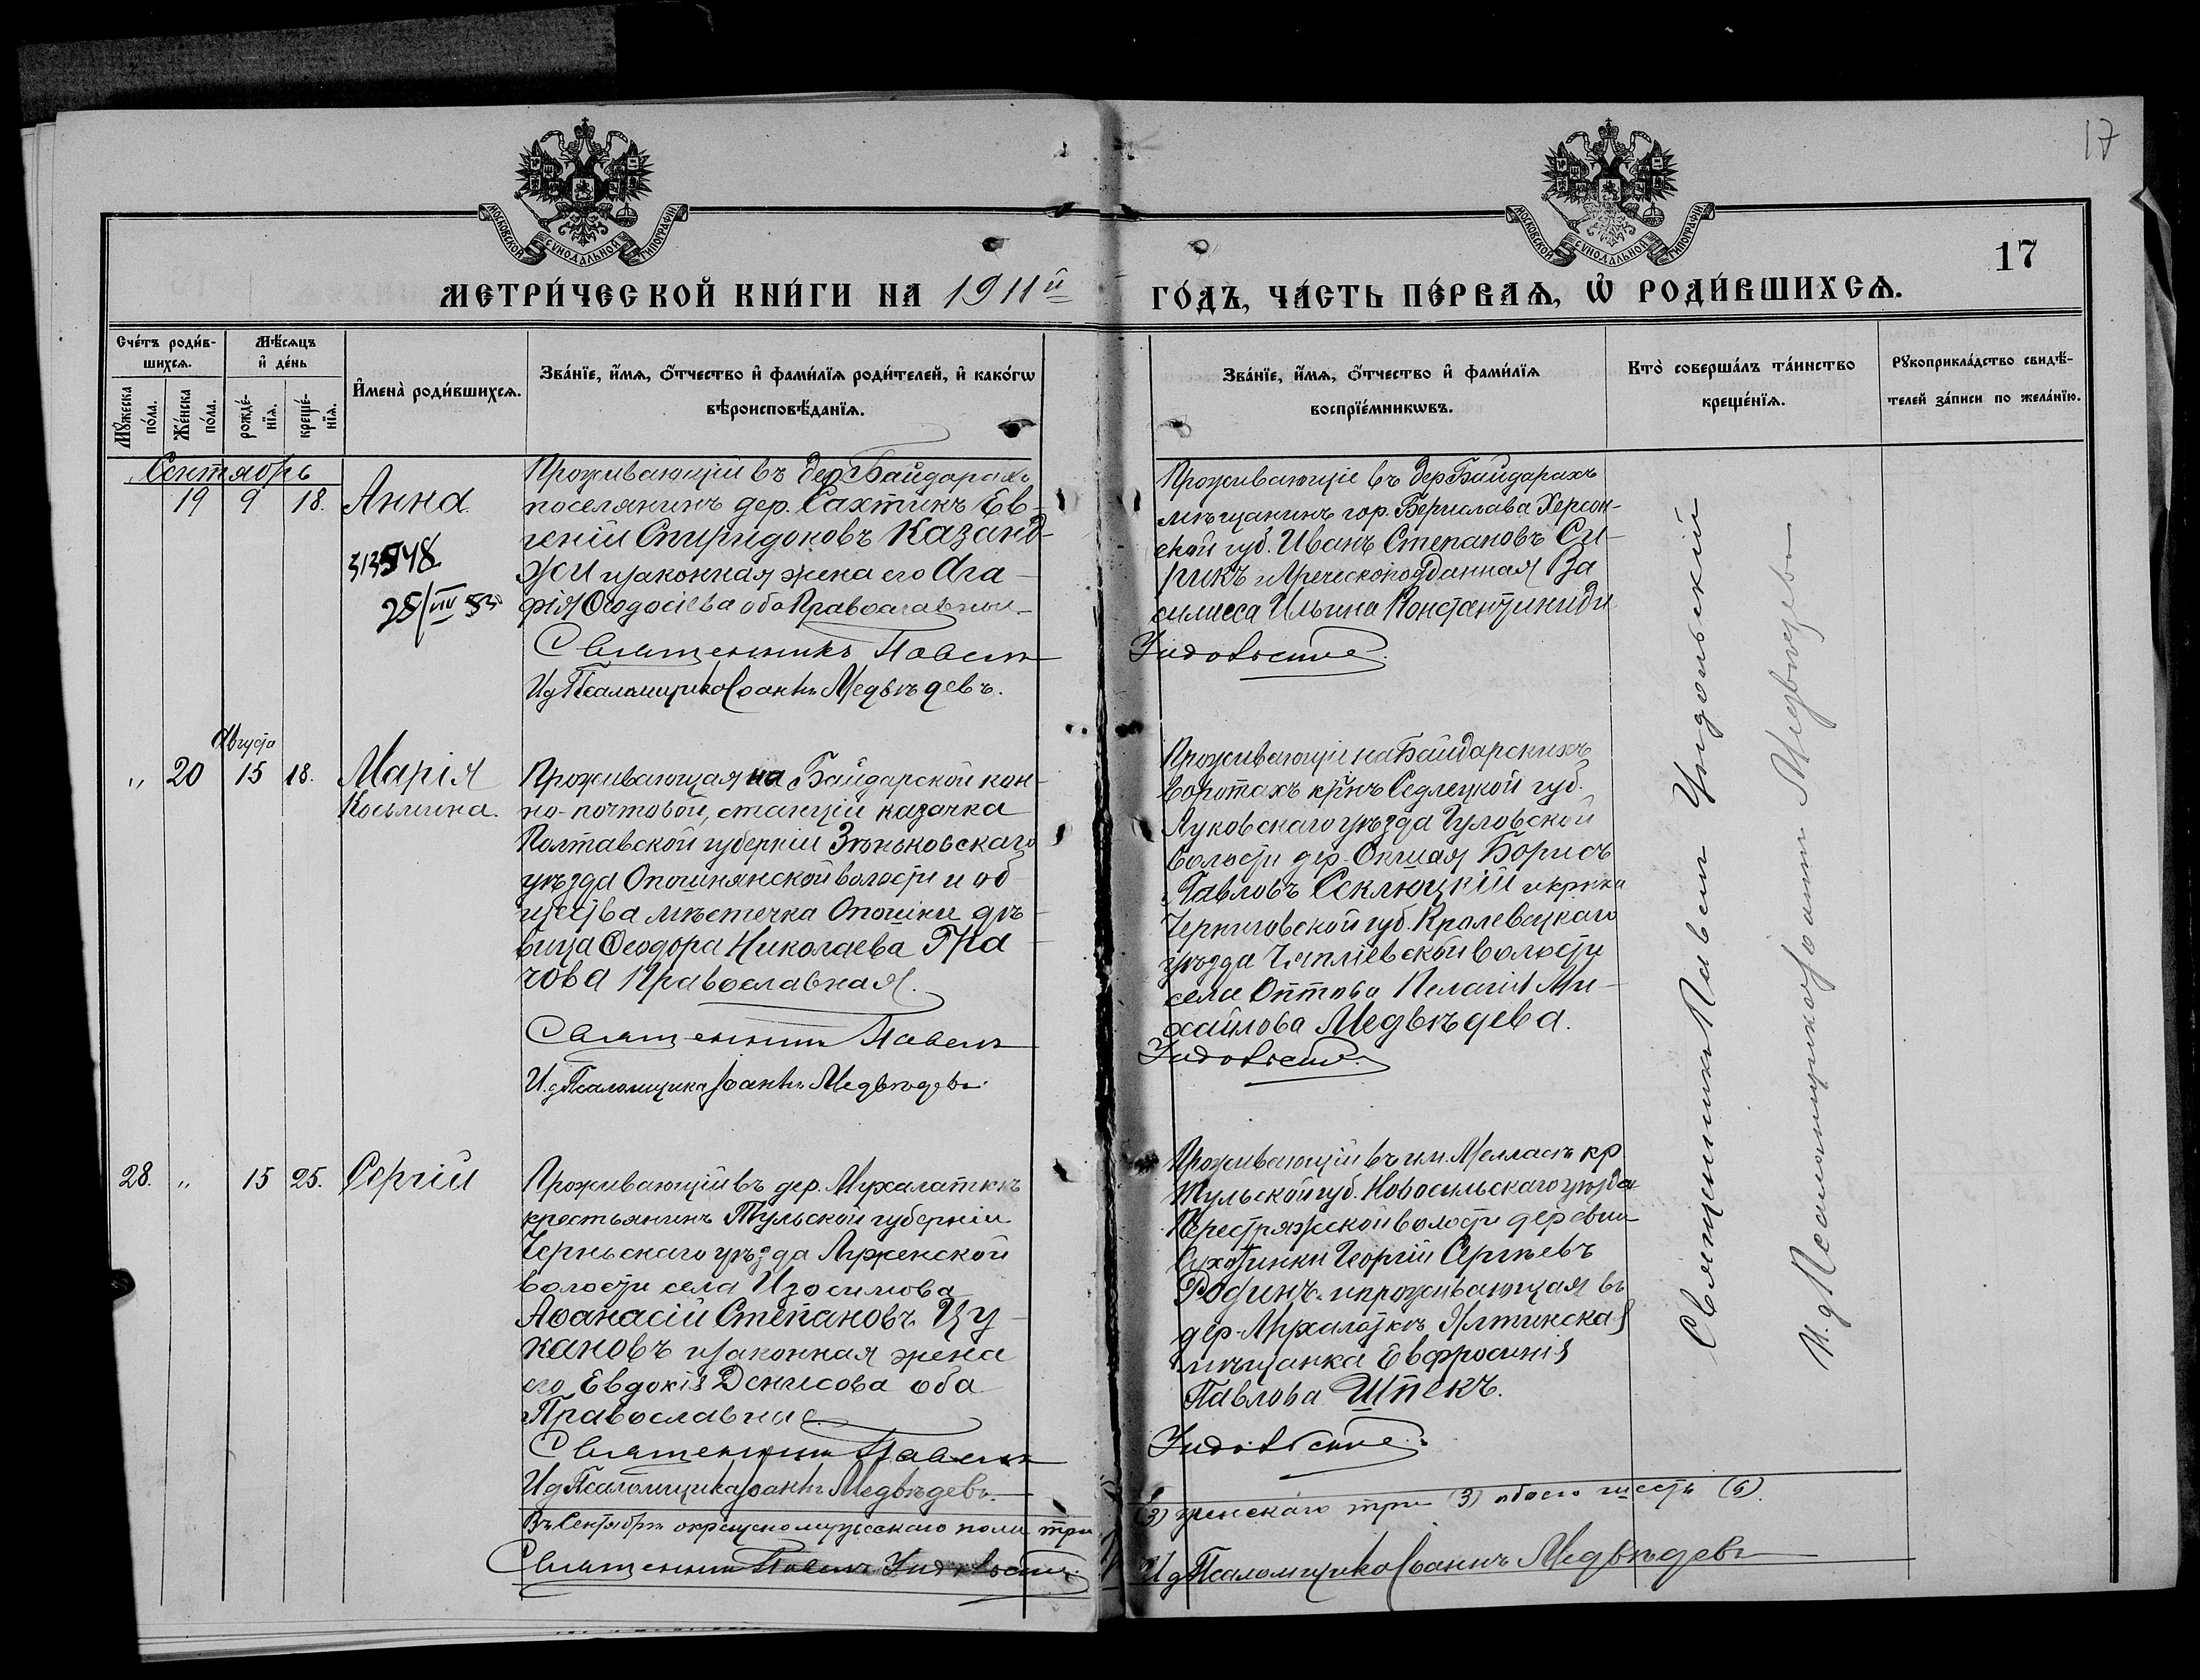 17
МОСКОВСКОЙ СѴНОДАЛЬНОЙ ТИПОГРАФІИ
МОСКОВСКОЙ СѴНОДАЛЬНОЙ ТИПОГРАФІИ
17
МЕТРИ́ЧЕСКОЙ КНИ́ГИ НА 1911й
ГО́ДЪ, ЧА́СТЬ ПЕ́РВАѦ, Ѡ҆ РОДИ́ВШИХСѦ.
Сче́тъ роди́в-
шихсѧ.
Мꙋ́жеска по́ла.
Же́нска по́ла.
Мѣ́сѧцъ
и҆ де́нь
рожде́-нїѧ.
креще́-нїѧ.
И҆мена̀ роди́вшихсѧ.
Зва́нїе, и҆́мѧ, ѻ҆́тчество и҆ фами́лїѧ роди́телей, и҆ како́гѡ
вѣроисповѣ́данїѧ.
Зва́нїе, и҆́мѧ, ѻ҆́тчество и҆ фами́лїѧ
воспрїе́мникѡвъ.
Кто̀ соверша́лъ та́инство
креще́нїѧ.
Рꙋкоприкла́дство свидѣ́-
телей за́писи по жела́нїю.
Сентябрь
19 9 18. Анна.
25/VIII 83
Проживающій въ дер. Байдарахъ
поселянинъ дер. Сахтикъ Ев-
геній Спиридоновъ Казанд-
жи и законная жена его Ага-
фія Ѳеодосіева оба Православные
Священникъ Павелъ
И д Псаломщика Іоаннъ Медвѣдевъ.
Проживающіе въ дер Байдарахъ
мѣщанинъ гор. Берислава Херсон-
ской губ. Иванъ Степановъ Си-
рикъ и Греческоподданная Ва
силисса Ильина Константиниди
Ундольскій
Августа
" 20 15 18. Марія
Косьмина.
Проживающая на Байдарской кон-
но-почтовой, станціи казачка
Полтавской губерніи Зѣньковскаго
уѣзда Опошнянской волости и об
щества мѣстечка Опошни дѣ-
вица Ѳеодора Николаева Гра-
чова Православная.
Священникъ Павелъ
И.д Псаломщика Іоаннъ Медвѣдевъ.
Проживающіе на Байдарскихъ
воротахъ кр̃нъ Седлецкой губ.
Луковскаго уѣзда Гуловской
волости дер. Борисъ
Павловъ Секлюцкій и крнка
Черниговской губ. Кролевецкаго
уѣзда волости
села Пелагія Ми-
хайлова Медвѣдева.
Ундольскій
28. " 15 25. Сергій
Проживающій въ дер. Мухалаткѣ
крестьянинъ Тульской губерніи
Черньскаго уѣзда
волости села Изосимова
Аѳанасій Степановъ Цу-
кановъ и законная жена
его Евдокія Денисова оба
Православные
Священникъ Павелъ
И д Псаломщика Іоаннъ Медвѣдевъ.
Проживающій въ им. Мелласъ кр
Тульской губ. Новосильскаго уѣзда
волости деревни
Георгій Сергѣевъ
Родинъ и проживающая въ
дер. Мухалаткѣ Ялтинская
мѣщанка Евфросинія
Павлова Шпекъ.
Ундольскій
Въ Сентябрѣ окрещено мужескаго пола три
(3) женскаго три (3) обоего шесть (6).
Священникъ Павелъ Ундольскій
И д Псаломщика Іоаннъ Медвѣдевъ
Священникъ Павелъ Ундольскій
И.д Псаломщика Іоаннъ Медвѣдевъ